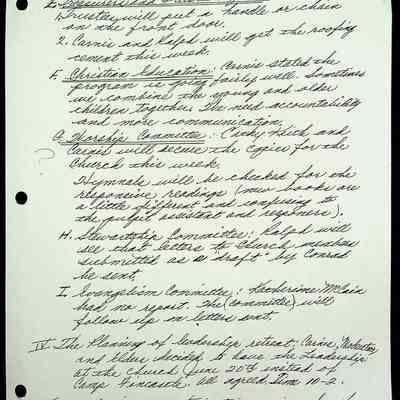 1. Trustees will put a handle or chain
on the front door.
2. Carnis and Ralph will get the roofing
cement this week.
F. Christian Education: Carnis stated the
program is going fairly well. Sometimes
we combine the young and older
children together. The need accountability
and more communication.
G. Worship Committee: Cathy and
Carnis will secure the copier for the
Church this week.
?
Hymnals will be checked for the
responsive readings (new books are
a little different and confusing to
the pulpit assistant and
H. Stewartship Committee: Ralph will
see that letters to Church members
submitted as a "draft" by Conrad
be sent.
I. Evangelism Committee: Katherine McCain
had no report. The (committee) will
follow up on letters sent.
IV The Planning of leadership retreat:
and Elder decided to have the Leadership
at the church June 20th instead of
Camp Fincastle. All agreed. Time 10-2.